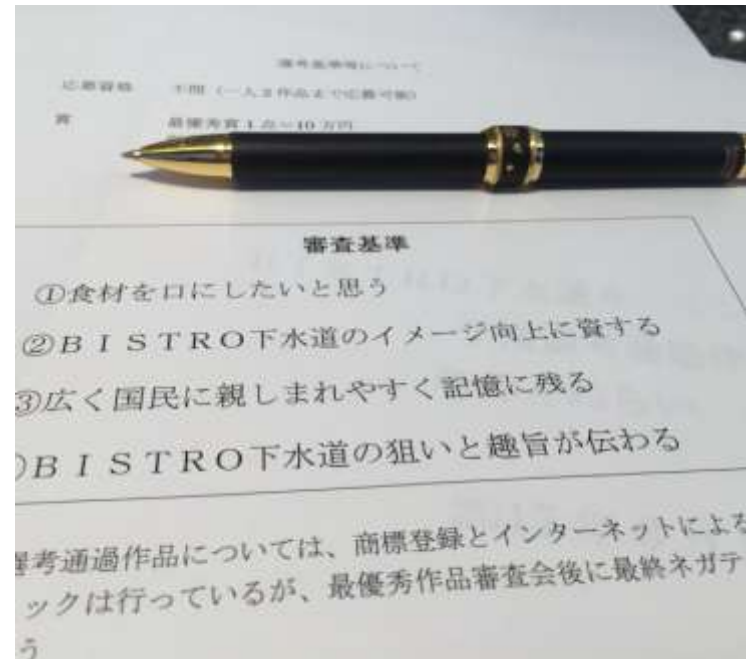 選考基準等について
応募資格 不問（一人2作品まで応募可能）
賞 最優秀賞1点～10万円
審査基準
①食材を口にしたいと思う
②BISTRO下水道のイメージ向上に資する
③広く国民に親しまれやすく記憶に残る
BISTRO下水道の狙いと趣旨が伝わる
選考通過作品については、商標登録とインターネットによる
ックは行っているが、最優秀作品審査会後に最終ネガテ
う